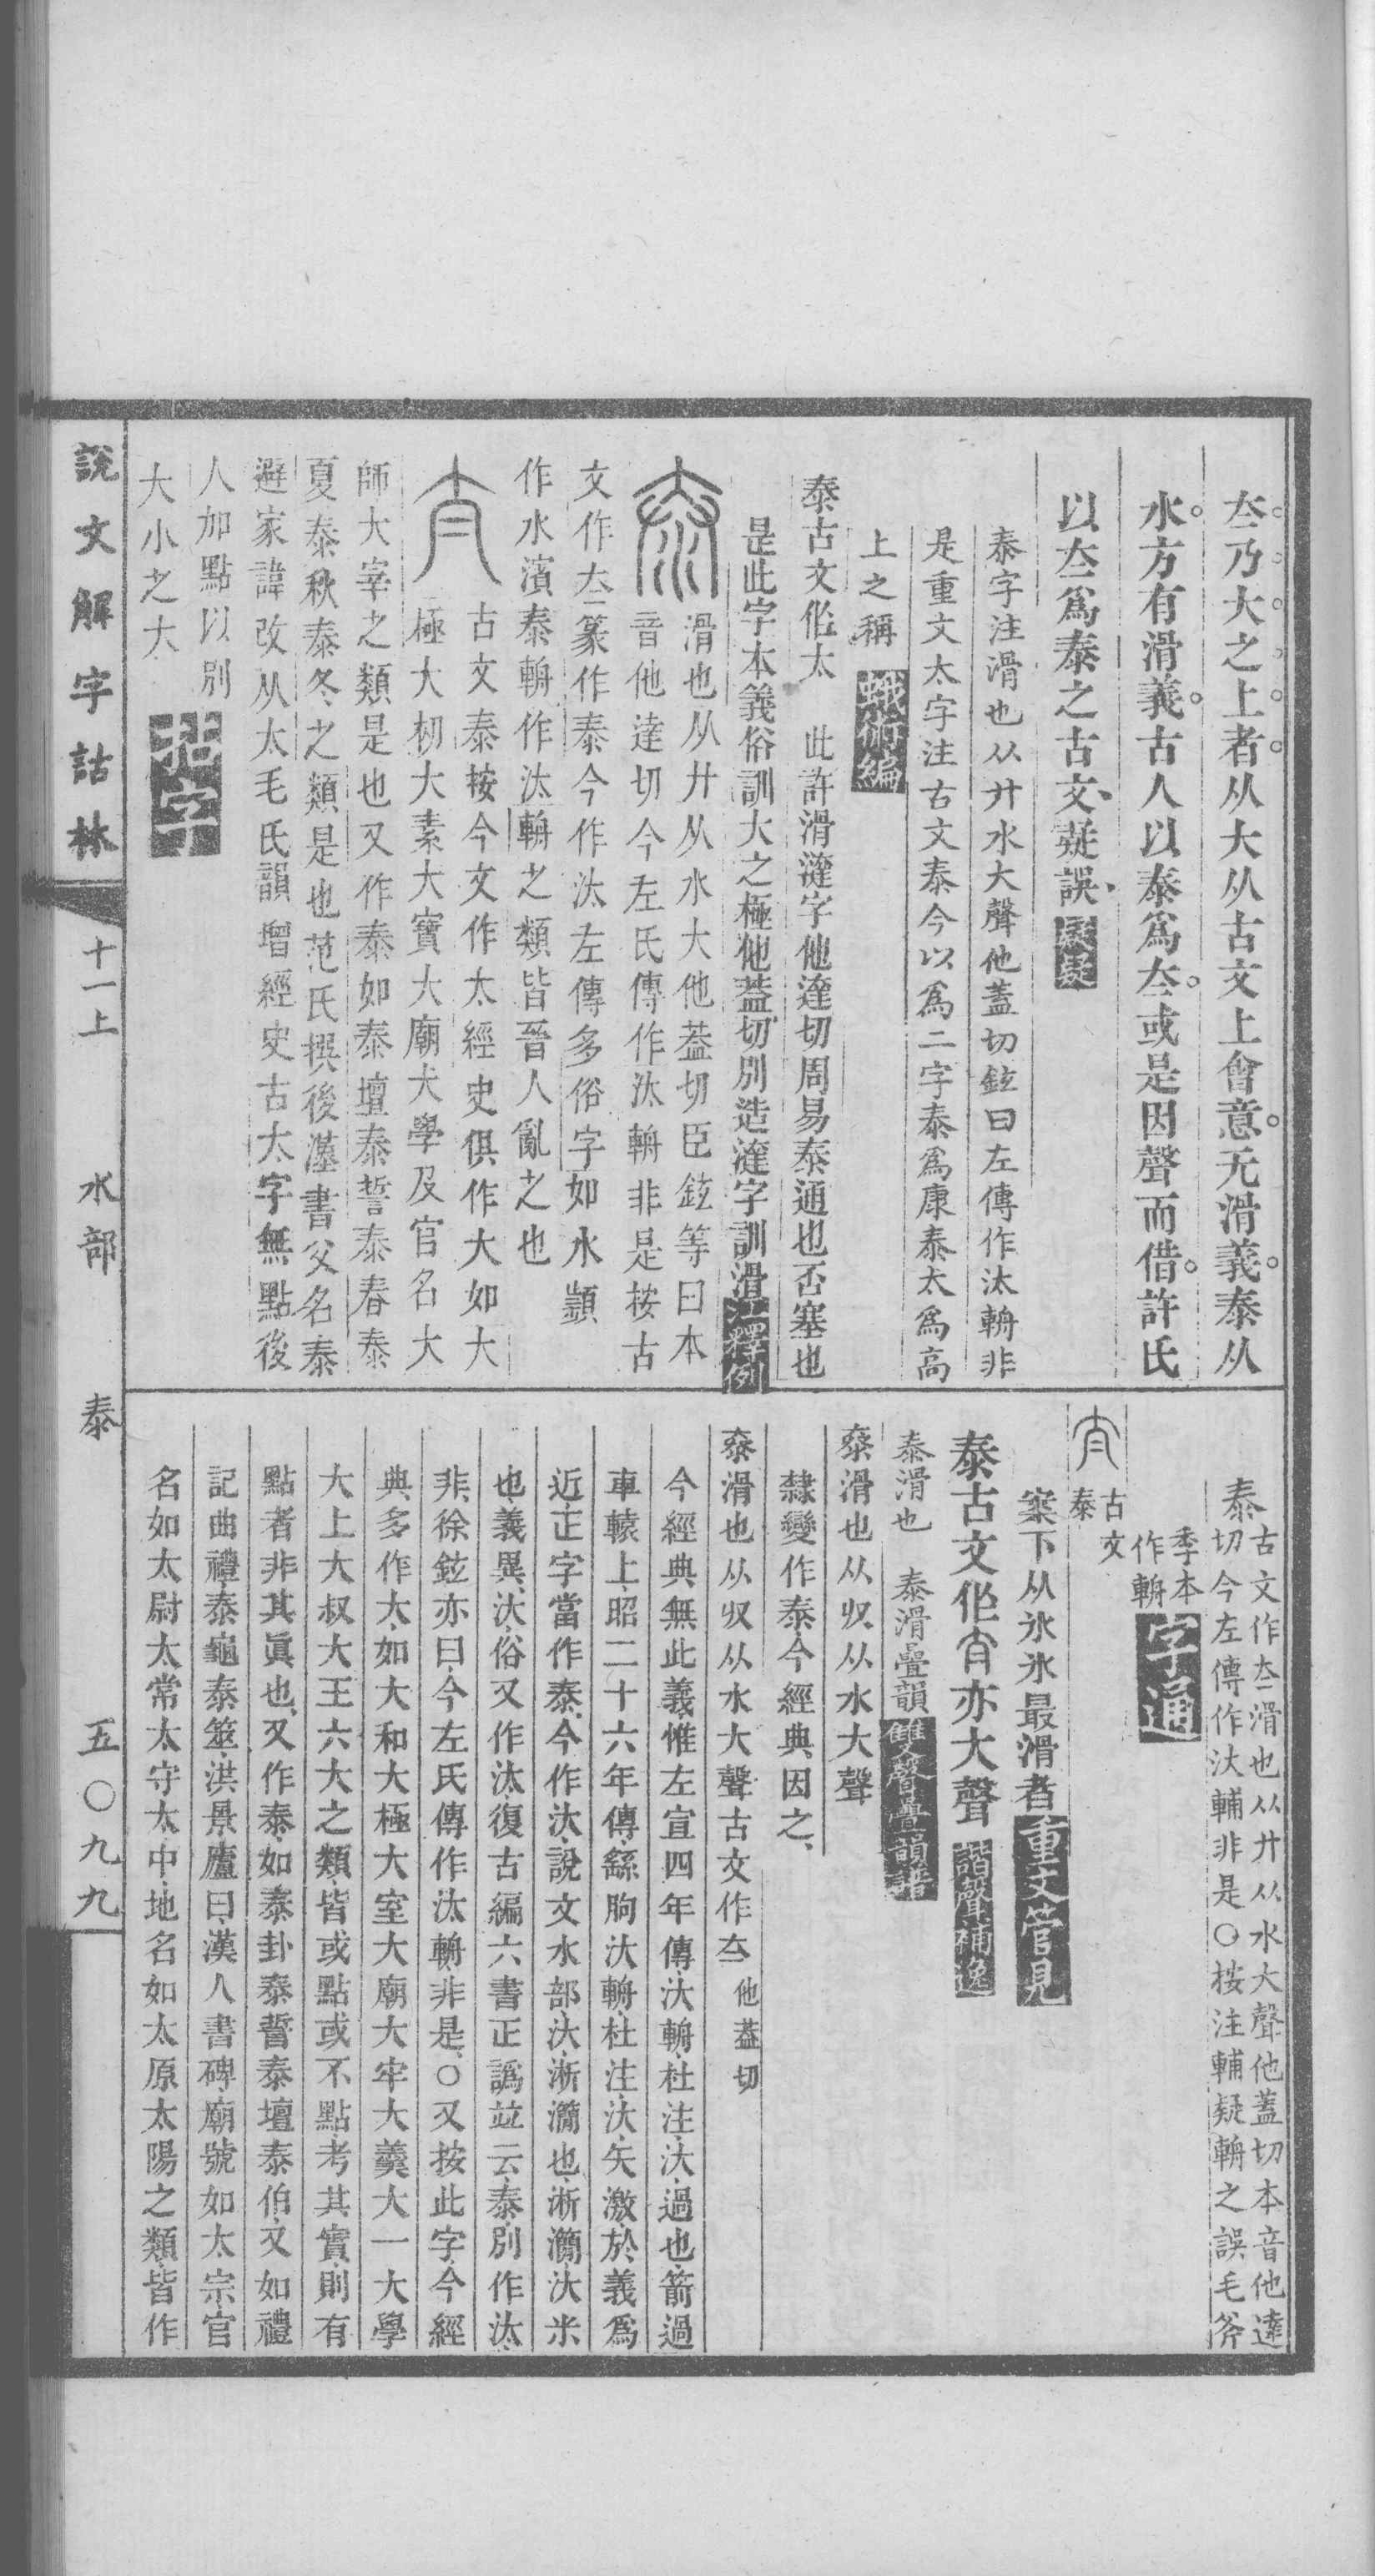 夳乃大之上者从大从古文上會意无滑義泰从
水方有滑義古人以泰爲夳或是因聲而借許氏
以夳爲泰之古文疑誤展疑
泰字注滑也从廾水大聲他蓋切鉉曰左傳作汰輈非
是重文太字注古文泰今以爲二字泰爲康泰太爲高
上之稱蛾術編
泰古文㑅太 此許滑澾字他達切周易泰通也否塞也
是此字本義俗訓大之極他葢切別造澾字訓滑江釋例
滑也从廾从水大他葢切臣鉉等曰本
音他達切今左氏傳作汰輈非是按古
文作夳篆作泰今作汰左傳多俗字如水顥
作水濱泰輈作汰輈之類皆晉人亂之也
古文泰按今文作太經史俱作大如大
極大初大素大寶大廟大學及官名大
師大宰之類是也又作泰如泰壇泰誓泰春泰
夏泰秋泰冬之類是也范氏撰後漢書父名泰
避家諱改从太毛氏韻增經史古太字無點後
人加點以別
大小之大
說文解字詁林 十一上 水部 泰 五〇九九
泰 古文作夳滑也从廾从水大聲他蓋切本音他達
切今左傳作汏輔非是〇按注輔疑輈之誤毛斧
季本
作輈字通
古文
泰
案下从氷氷最滑者重文管見
泰古文㑅亦大聲諧聲補逸
泰滑也 泰滑疊韻雙聲疊韻譜
㤗滑也从収从水大聲
隸變作泰今經典因之、
㤗滑也从収从水大聲古文作夳他葢切
今經典無此義惟左宣四年傳汏輈杜注汏過也箭過
車轅上昭二十六年傳繇朐汏輈杜注汏矢激於義爲
近正字當作泰今作汏說文水部汏淅灡也淅灡汏米
也義異汏俗又作汰復古編六書正譌竝云泰別作汰
非徐鉉亦曰今左氏傳作汰輈非是〇又按此字今經
典多作大如大和大極大室大廟大牢大羹大一大學
大上大叔大王六大之類皆或點或不點考其實則有
點者非其眞也又作泰如泰卦泰誓泰壇泰伯又如禮
記曲禮泰龜泰筮洪景廬曰漢人書碑廟號如太宗官
名如太尉太常太守太中地名如太原太陽之類皆作